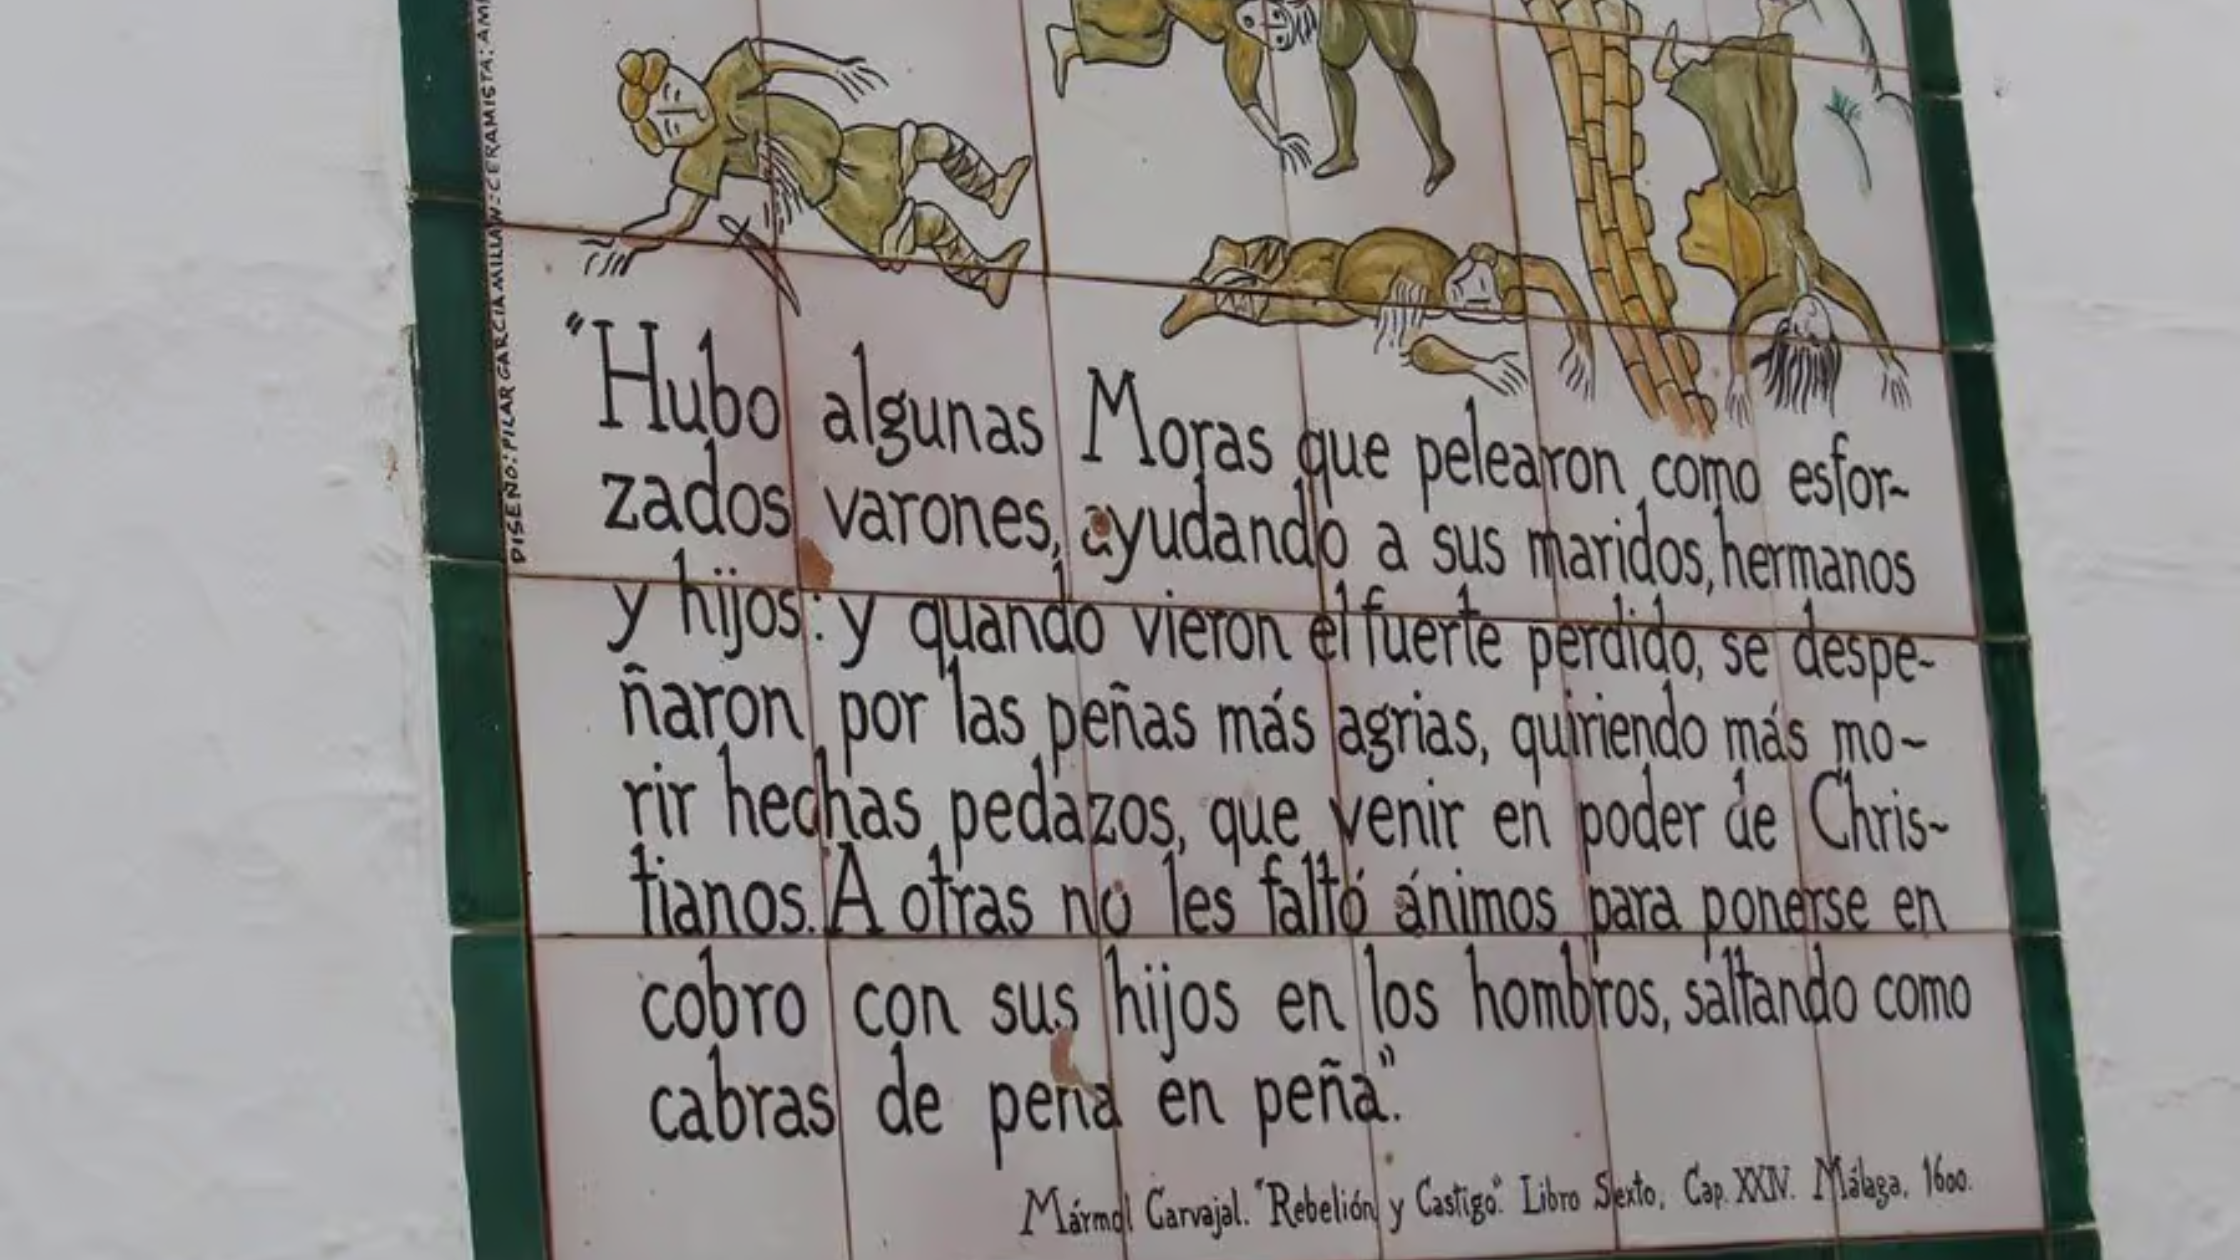 DISEÑO: PILAR GARCIA MILLAN: CERAMISTA:
"Hubo algunas Moras que pelearon como esfor-
zados varones, ayudando a sus maridos, hermanos
y hijos: y quando vieron el fuerte perdido, se despe-
ñaron por las peñas más agrias, quiriendo más mo-
rir hechas pedazos, que venir en poder de Chris-
tianos. A otras no les faltó ánimos para ponerse en
cobro con sus hijos en los hombros, saltando como
cabras de peña en peña".
Mármol Carvajal. "Rebelión y Castigo". Libro Sexto, Cap. XXIV. Málaga, 1600.